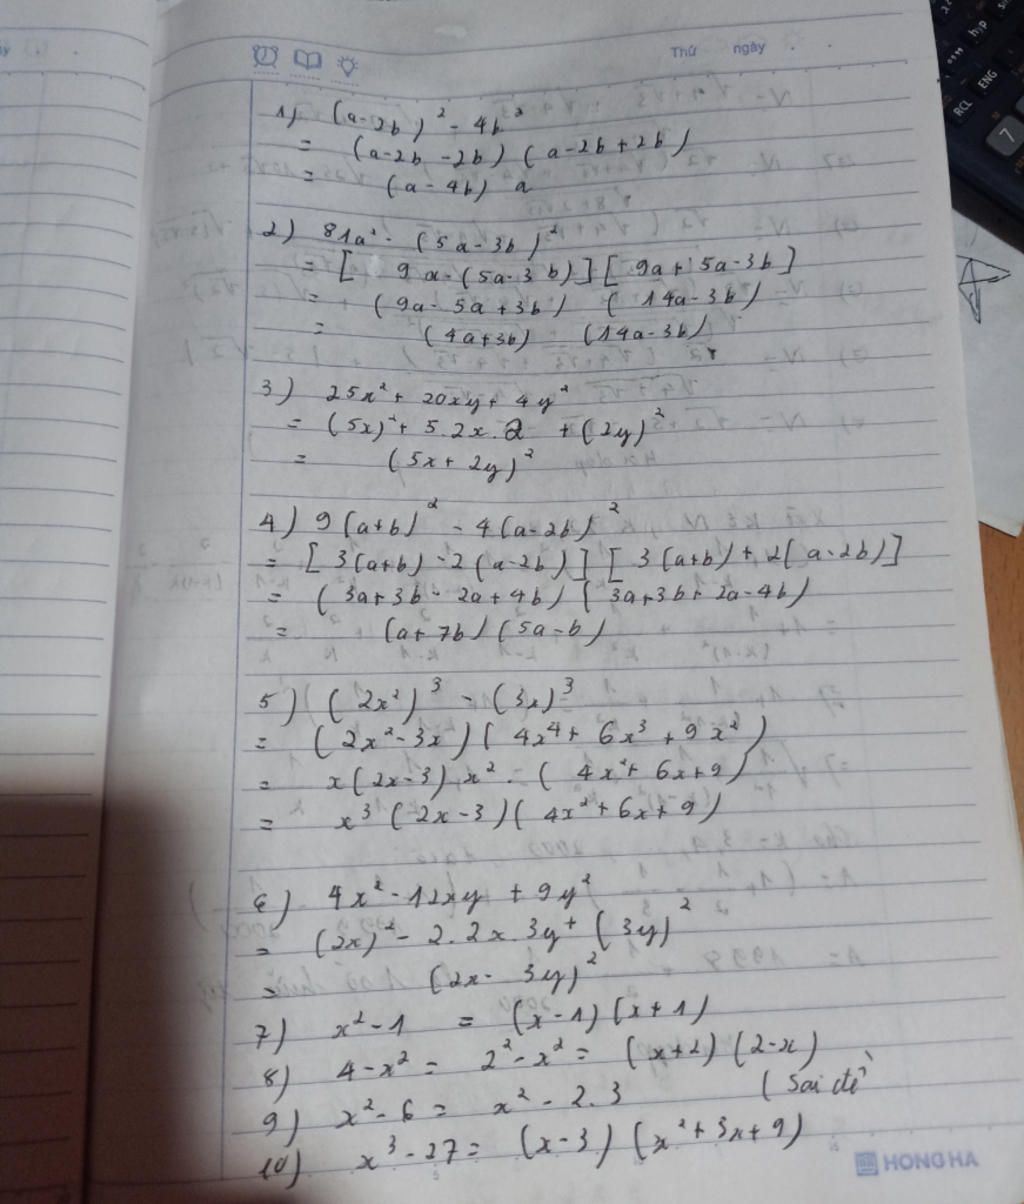 Thứ ngày
1) (a-2b)² - 4b²
= (a-2b-2b) (a-2b+2b)
= (a-4b) a
2) 81a² - (5a-3b)²
= [9a-(5a-3b)][9a+5a-3b]
= (9a-5a+3b) (14a-3b)
= (4a+3b) (14a-3b)
3) 25x² + 20xy + 4y²
= (5x)² + 5.2x.2 + (2y)²
= (5x+2y)²
4) 9(a+b)² - 4(a-2b)²
= [3(a+b)-2(a-2b)][3(a+b)+2(a-2b)]
= (3a+3b-2a+4b)(3a+3b+2a-4b)
= (a+7b)(5a-b)
5) (2x²)³ - (3x)³
= (2x²-3x)(4x⁴+6x³+9x²)
= x(2x-3).x².(4x²+6x+9)
= x³(2x-3)(4x²+6x+9)
6) 4x²-12xy+9y²
= (2x)²-2.2x.3y+(3y)²
= (2x-3y)²
7) x²-1 = (x-1)(x+1)
8) 4-x² = 2²-x² = (x+2)(2-x)
9) x²-6 = x²-2.3 (Sai đề
10) x³-27 = (x-3)(x²+3x+9)
HONG HA
hyp
RCL ENG
7